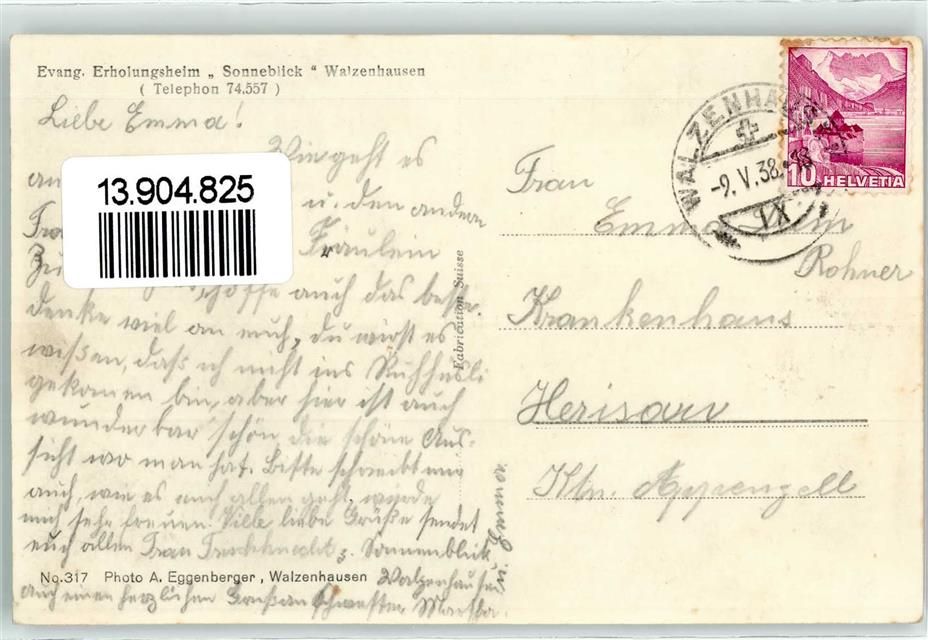 Evang. Erholungsheim „ Sonneblick “ Walzenhausen
( Telephon 74.557 )
Liebe Emma!
Wie geht es
u. den andern
Fräulein
hoffe auch das beste.
denke viel an euch, du wirst es
wißen, daß ich nicht ins Ruhhüsli
gekomen bin, aber hier ist auch
wunderbar schön die schöne Aus-
sicht wo man hat. Bitte schreibt mir
auch, wie es euch allen geht, würde
mich sehr freuen. Viele liebe Grüße sendet
euch allen Frau z. Sonnenblick
Walzenhausen
auch einen herzlichen Gruß an Schwester Martha.
No. 317 Photo A. Eggenberger , Walzenhausen
Fabrication Suisse
13.904.825
WALZENHAUSEN
-9.V.38.
IX
10 HELVETIA
Frau
Emma
Rohner
Krankenhaus
Herisau
Ktn. Appenzell